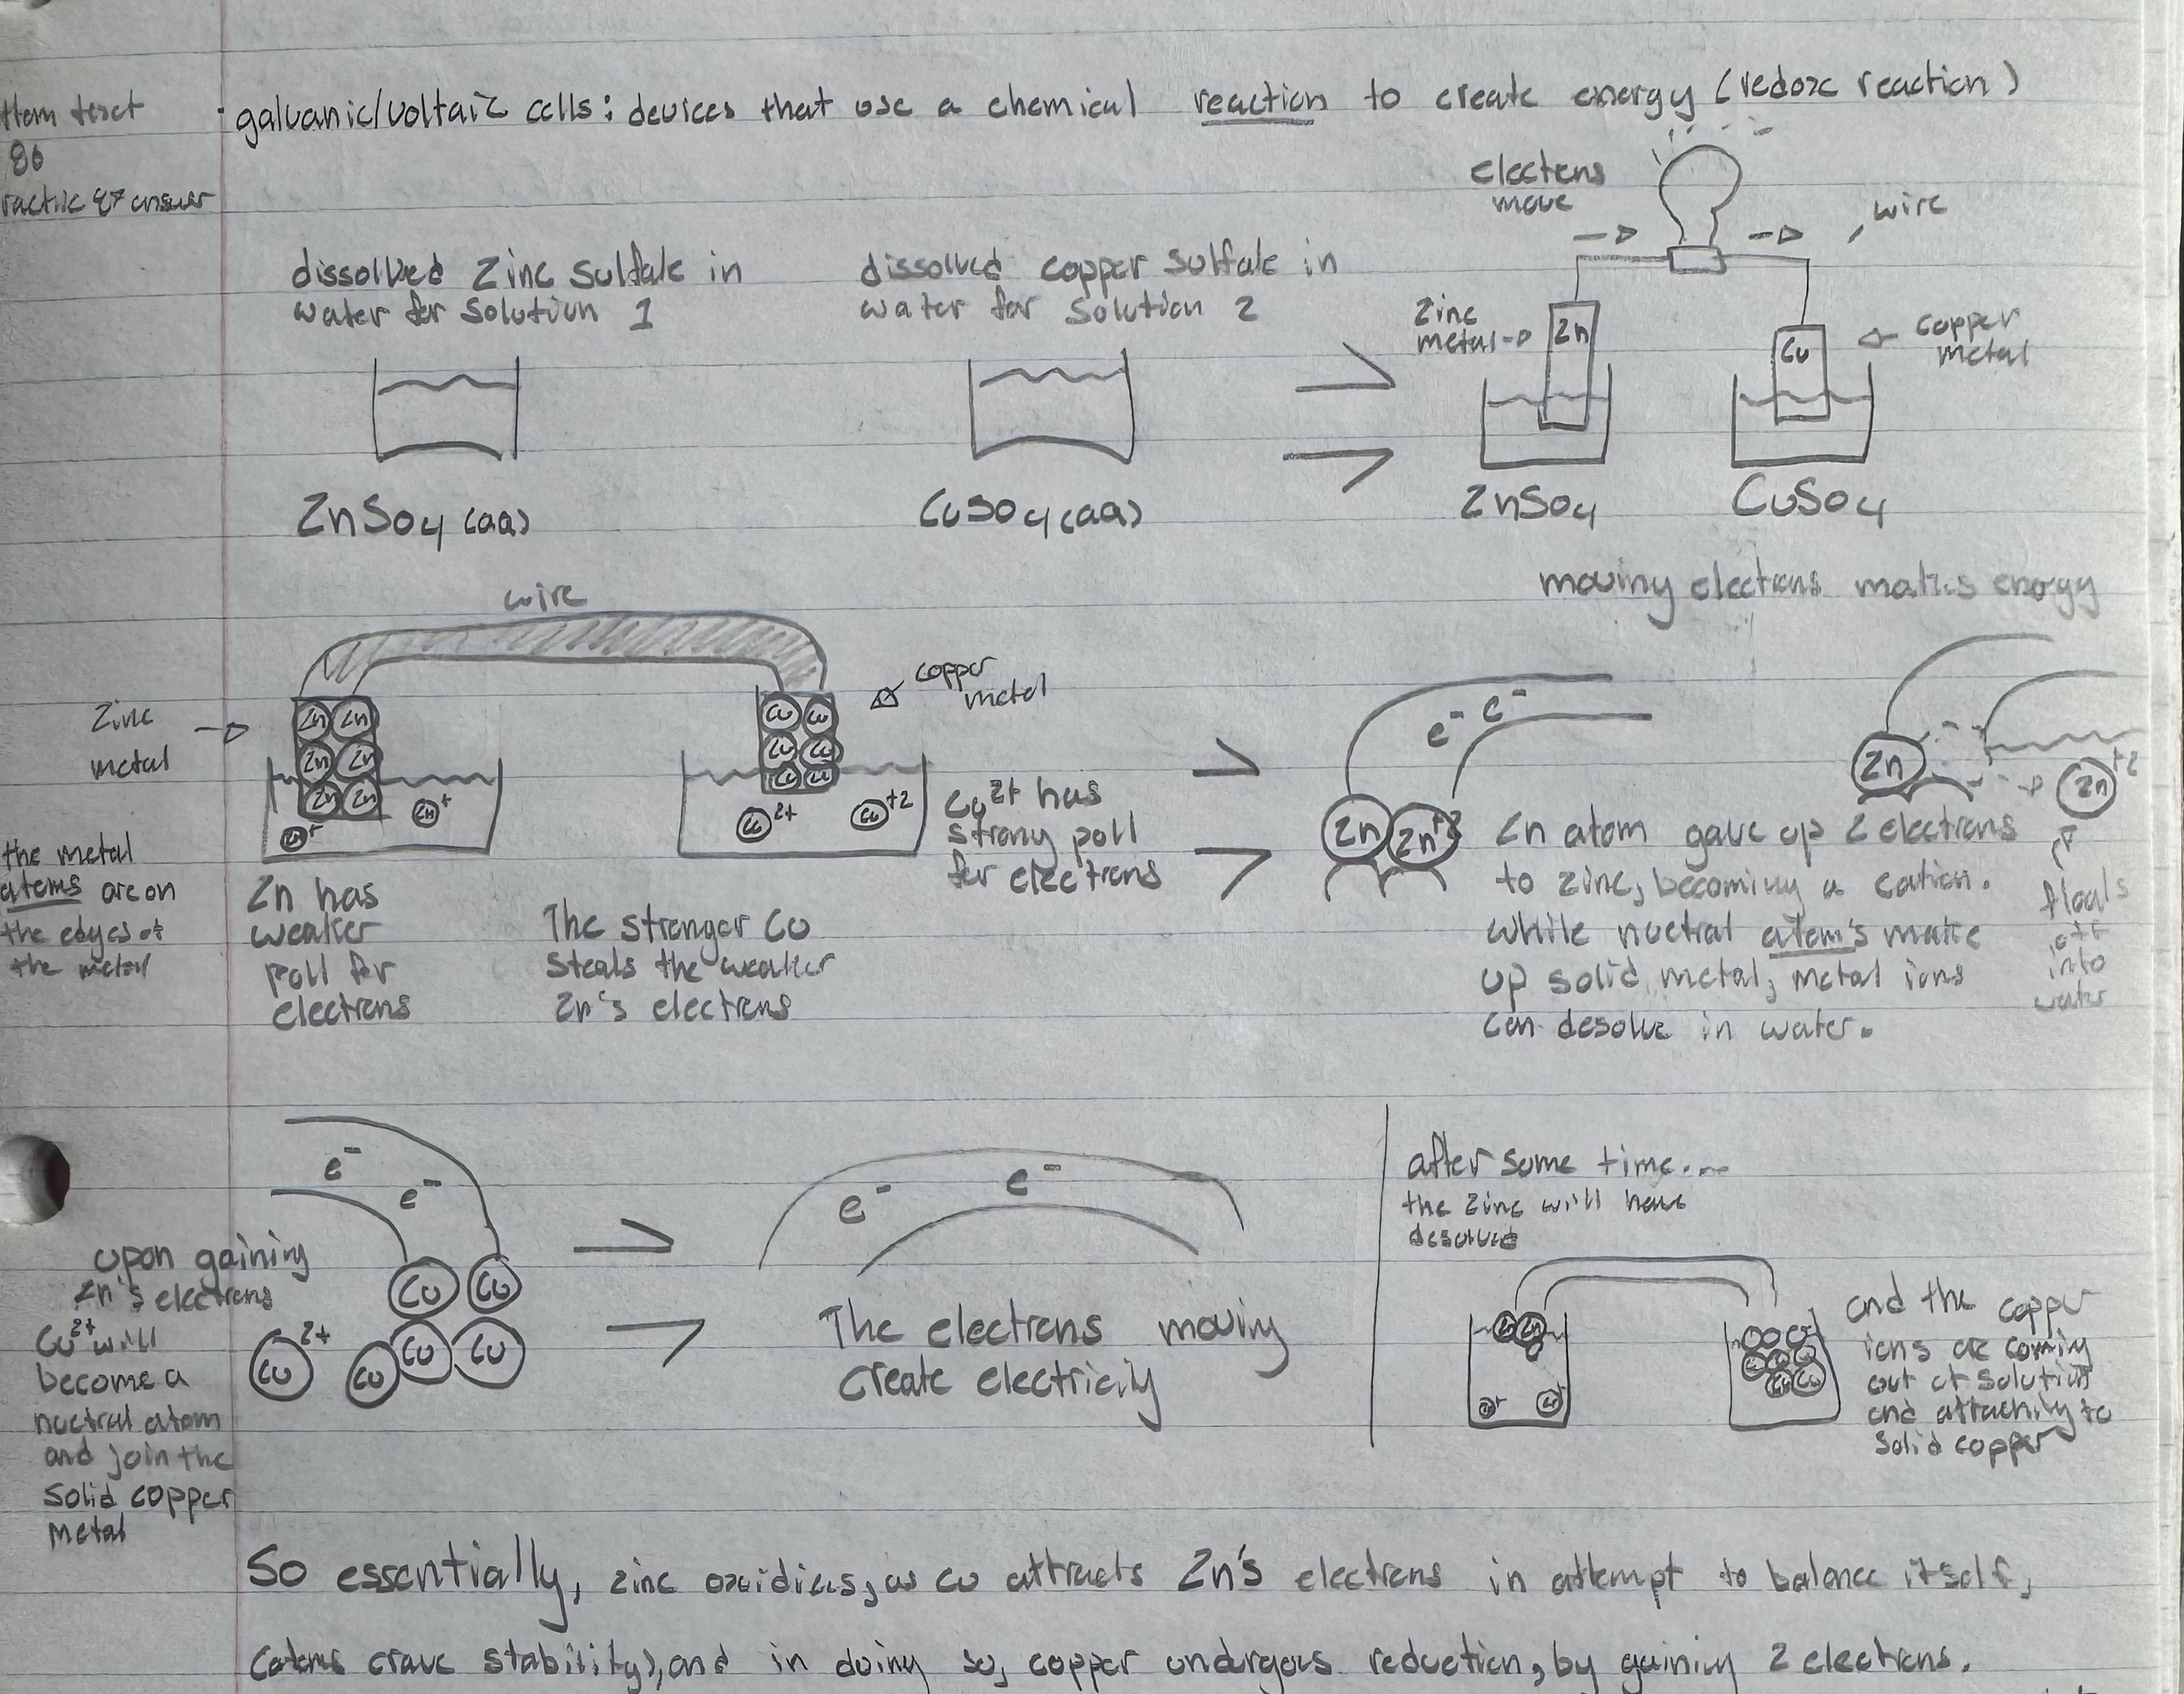 galvanic/voltaic cells: devices that use a chemical reaction to create energy (redox reaction)
80
dissolved Zinc sulfate in
water for solution 1
dissolved copper sulfate in
water for solution 2
electens
move
wire
Zinc
metal
Zn
Cu
copper
metal
ZnSO4 (aq)
CuSO4 (aq)
ZnSO4
CuSO4
moving electrons makes energy
wire
Zinc
metal
Zn Zn
Zn Zn
Zn Zn
Zn+
Zn+
copper
metal
Cu Cu
Cu Cu
Cu Cu
Cu 2+
Cu +2
Cu2+ has
strong poll
for electrons
the metal
atoms are on
the edges of
the metal
Zn has
weaker
poll for
electrons
The stronger Cu
steals the weaker
Zn's electrons
e- e-
Zn Zn+2
Zn
Zn +2
Zn atom gave up 2 electrons
to zinc, becoming a cation.
While nuetral atom's make
up solid metal, metal ions
can desolve in water.
floats
off
into
water
e-
e-
Cu Cu
Cu Cu
Cu 2+
Cu
upon gaining
Zn's electrons
Cu2+ will
become a
nuetral atom
and join the
solid copper
metal
e- e-
The electrons moving
create electricity
after some time...
the zinc will have
desolved
Zn Zn
and the copper
ions are coming
out of solution
and attaching to
solid copper
So essentially, zinc oxidizes, as cu attracts Zn's electrons in attempt to balance itself,
(atoms crave stability), and in doing so, copper undergoes reduction, by gaining 2 electrons.